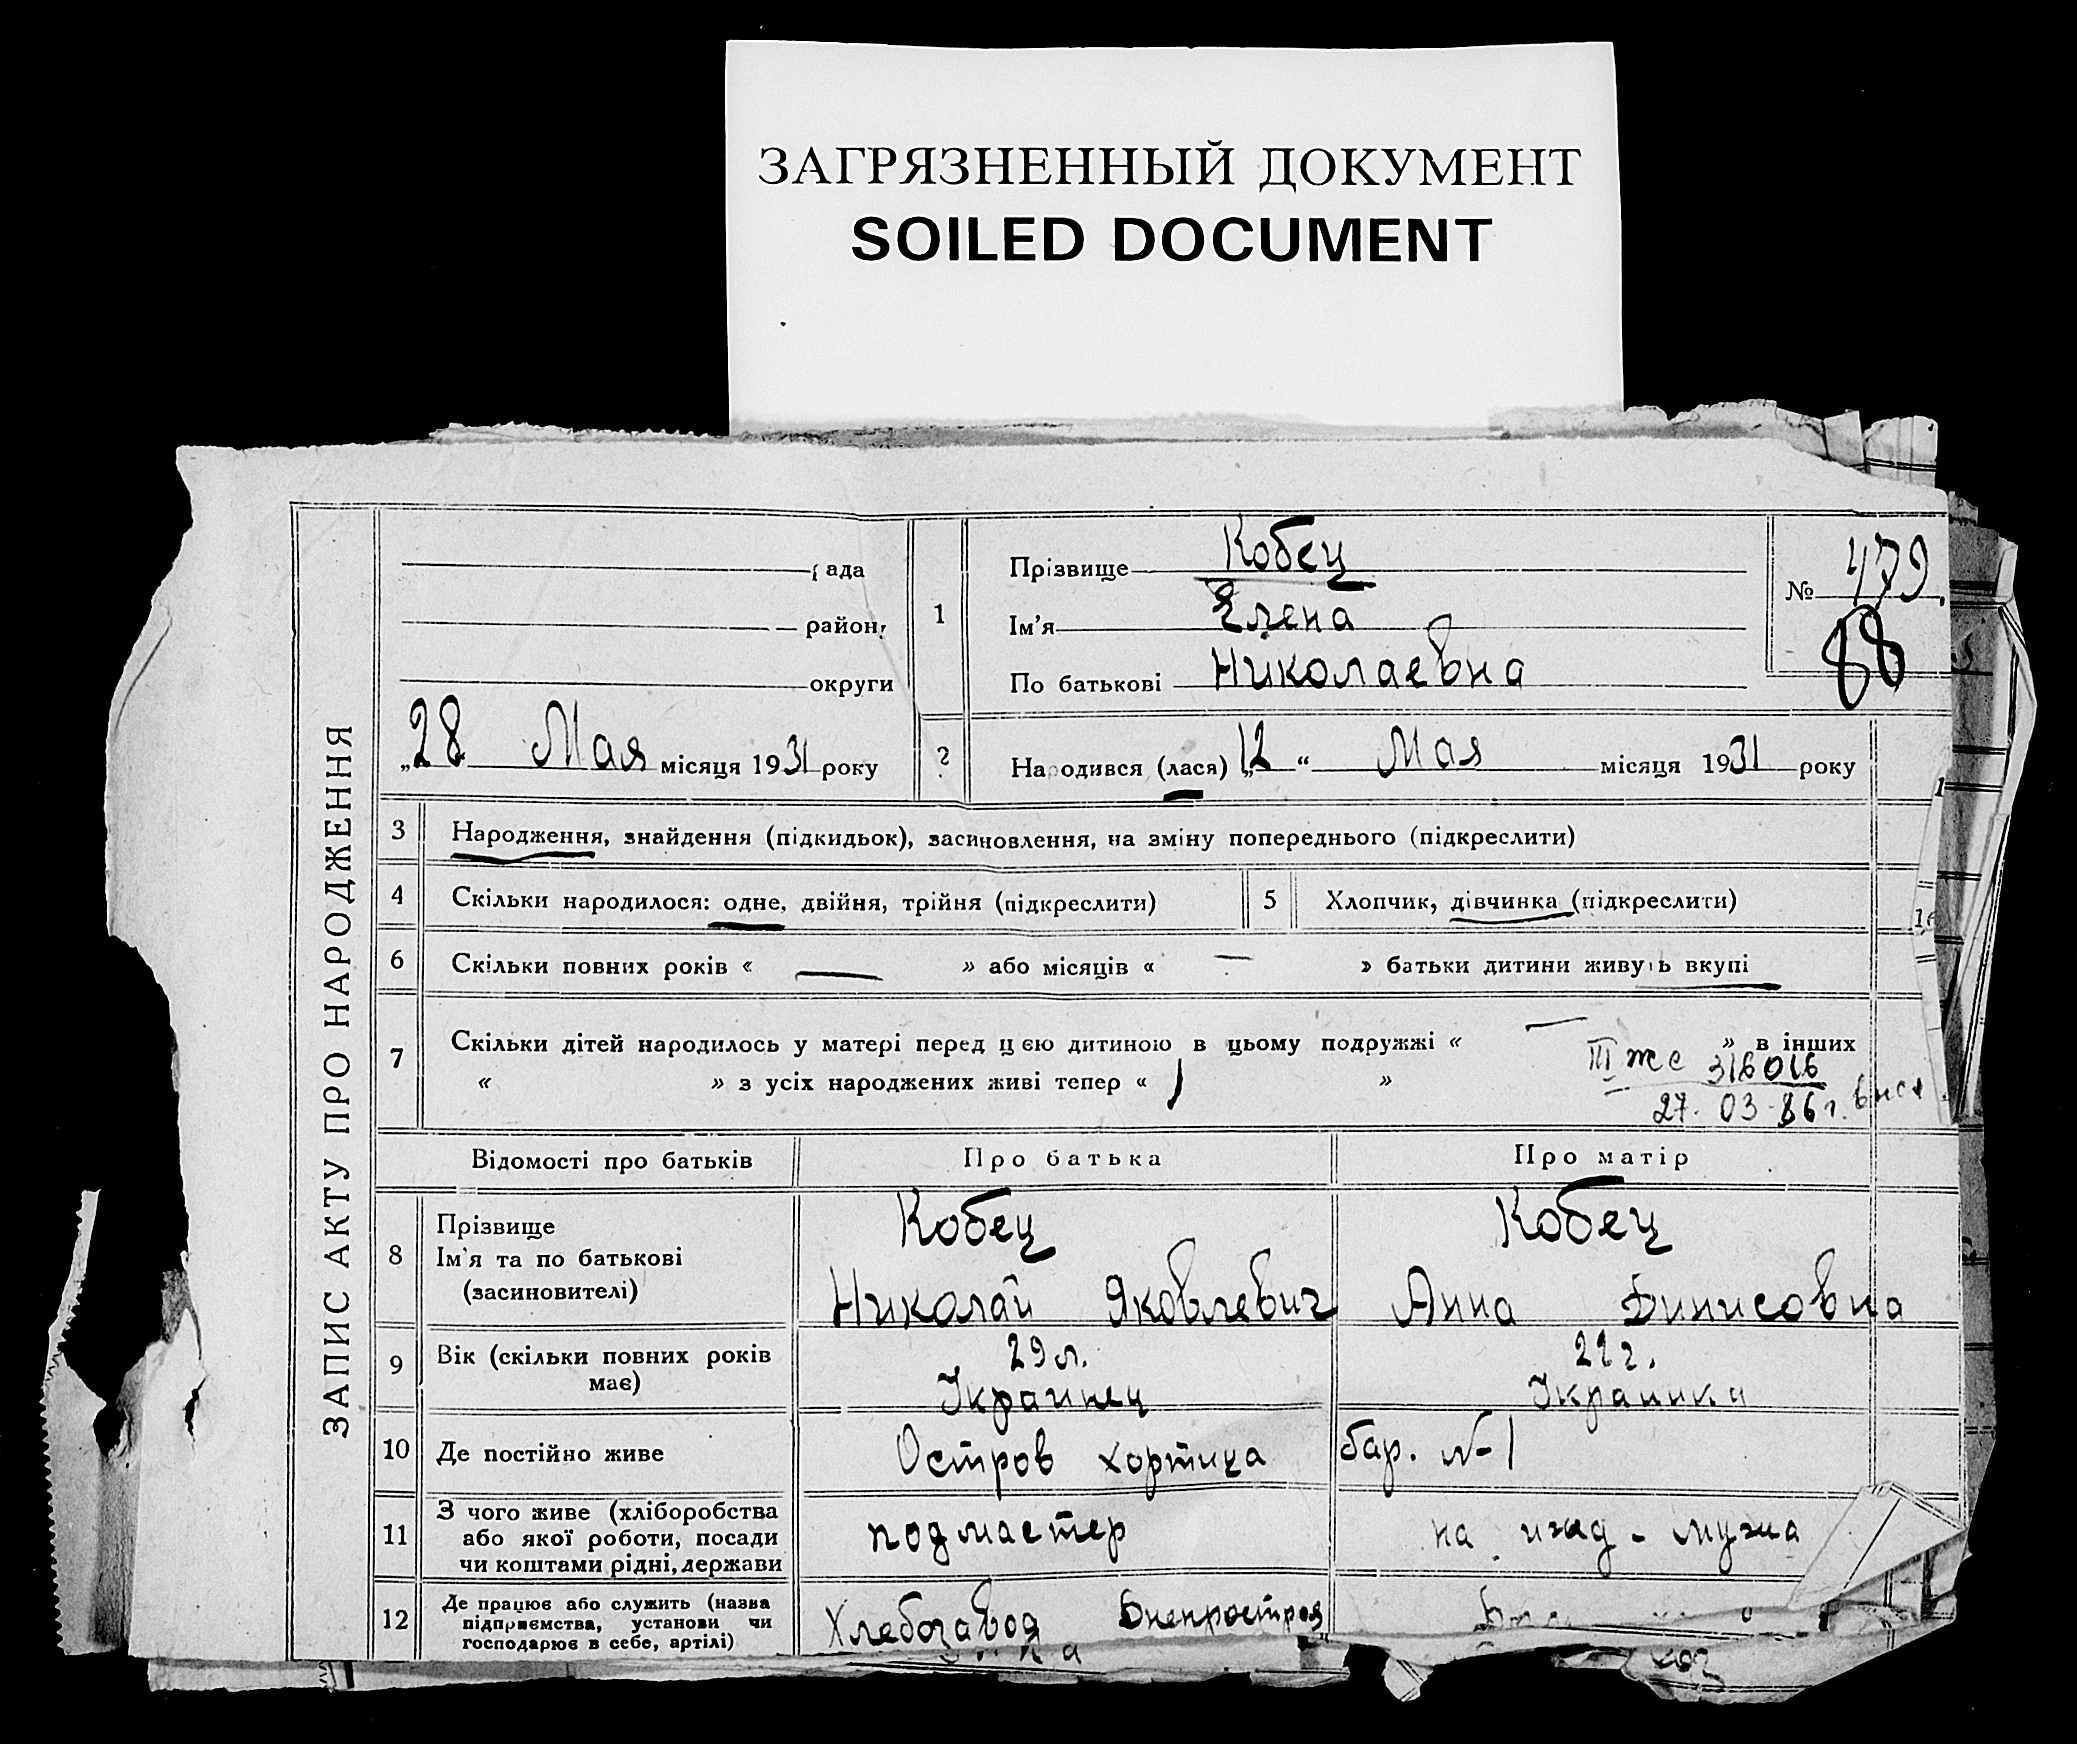 ЗАГРЯЗНЕННЫЙ ДОКУМЕНТ
SOILED DOCUMENT
ЗАПИС АКТУ ПРО НАРОДЖЕННЯ
рада
району
округи
„28 Мая місяця 1931 року
1
Прізвище Кобец
Ім'я Елена
По батькові Николаевна
№ 479.
88
2
Народився (лася) „12“ Мая місяця 1931 року
3 Народження, знайдення (підкидьок), засиновлення, на зміну попереднього (підкреслити)
4 Скільки народилося: одне, двійня, трійня (підкреслити)
5 Хлопчик, дівчинка (підкреслити)
6 Скільки повних років « — » або місяців « — » батьки дитини живуть вкупі
7 Скільки дітей народилось у матері перед цєю дитиною в цьому подружжі « — » в інших
« » з усіх народжених живі тепер « 1 »
III жс 316016
27.03.86г.
Відомості про батьків
Про батька
Про матір
8 Прізвище
Ім'я та по батькові
(засиновителі)
Кобец
Николай Яковлевич
Кобец
Анна Динисовна
9 Вік (скільки повних років
має)
29 л.
Украинец
22 г.
Украинка
10 Де постійно живе
Остров хортица
бар. №1
11 З чого живе (хліборобства
або якої роботи, посади
чи коштами рідні, держави
подмастер
на ижд - мужа
12 Де працює або служить (назва
підприємства, установи чи
господарює в себе, артілі)
Хлебозавод Днепростроя